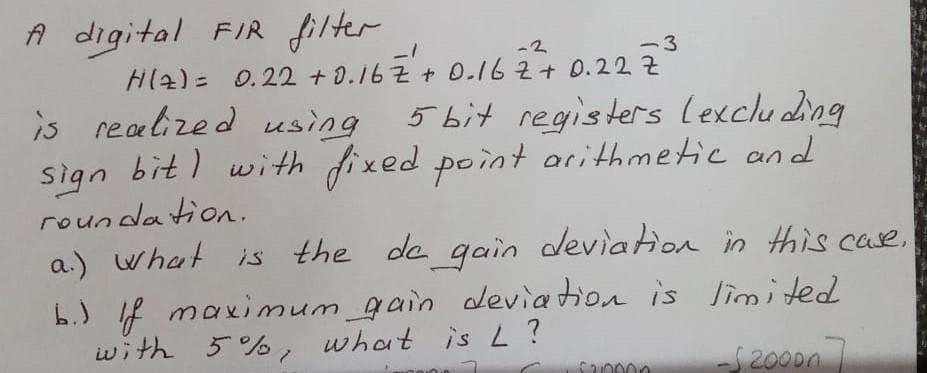 A digital FIR filter
H(z) = 0.22 + 0.16 z^-1 + 0.16 z^-2 + 0.22 z^-3
is realized using 5 bit registers (excluding
sign bit) with fixed point arithmetic and
roundation.
a.) What is the dc gain deviation in this case.
b.) If maximum gain deviation is limited
with 5%, what is L ?